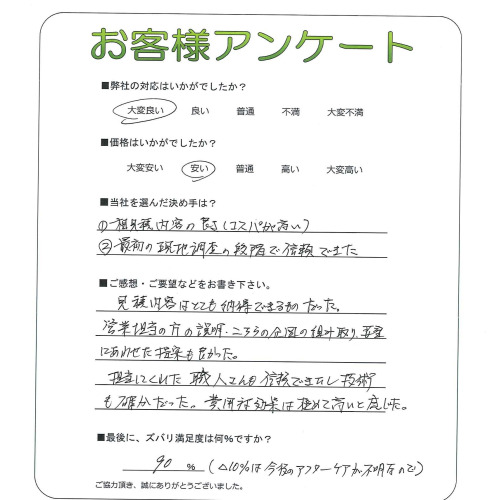 お客様アンケート
■弊社の対応はいかがでしたか？
大変良い 良い 普通 不満 大変不満
■価格はいかがでしたか？
大変安い 安い 普通 高い 大変高い
■当社を選んだ決め手は？
① 相見積内容の良さ(コスパが高い)
② 最初の現地調査の段階で信頼できた
■ご感想・ご要望などをお書き下さい。
見積内容はとても納得できるものだった。
営業担当の方の説明・こちらの企図の組み取り、要望
にあわせた提案も良かった。
担当してくれた職人さんも信頼できたし技術
も確かだった。費用対効果は極めて高いと感じた。
■最後に、ズバリ満足度は何％ですか？
90 % (△10%は今後のアフターケアが不明なので)
ご協力頂き、誠にありがとうございました。